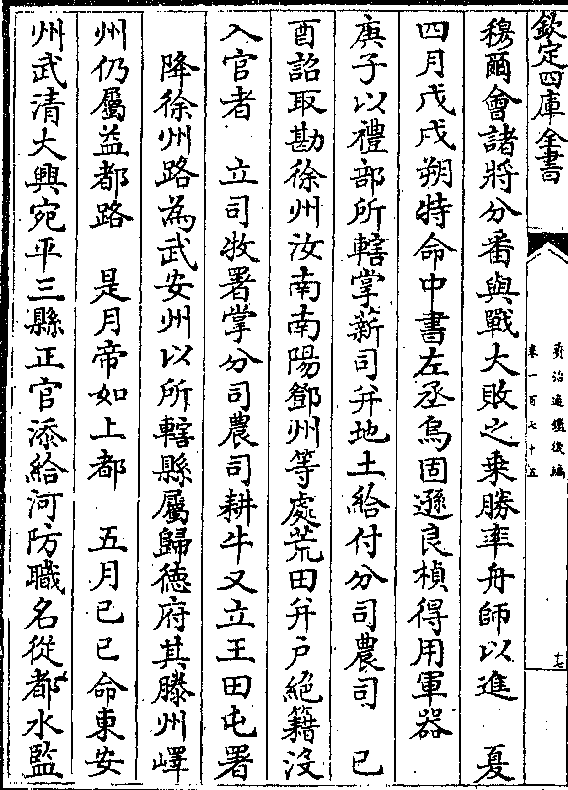 欽定四庫全書
資治通鑑後編
卷一百七十五
十七
穆爾會諸將分番與戰大敗之乘勝率舟師以進　夏
四月戊戌朔特命中書左丞烏固遜良楨得用軍器
庚子以禮部所轄掌薪司并地土給付分司農司　已
酉詔取勘徐州汝南南陽鄧州等處荒田并戶絕籍沒
入官者　立司牧署掌分司農司耕牛又立王田屯署
降徐州路為武安州以所轄縣屬歸德府其滕州嶧
州仍屬益都路　是月帝如上都　五月已已命東安
州武清大興宛平三縣正官添給河防職名從都水監